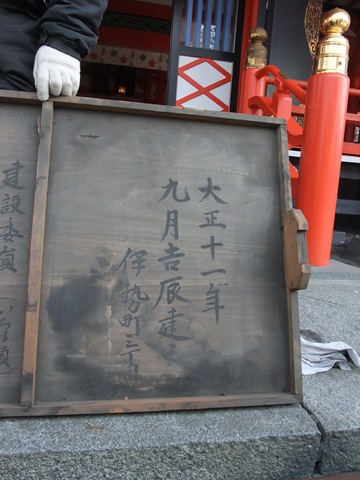 大正十一年
九月吉辰建之
伊勢町三丁目
建設委員